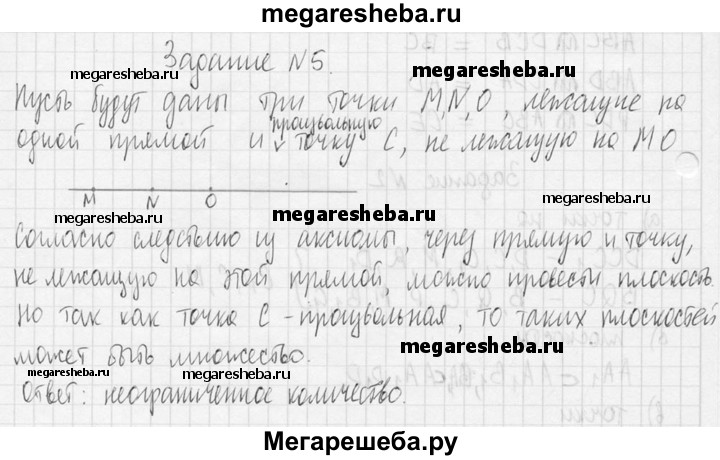 megaresheba.ru
Задание №5.
megaresheba.ru megaresheba.ru
Пусть будут даны три точки M, N, O, лежащие на
произвольную
одной прямой и точку C, не лежащую на MO
megaresheba.ru
M N O
megaresheba.ru
Согласно следствию из аксиомы, через прямую и точку,
не лежащую на этой прямой, можно провести плоскость.
Но так как точка C - произвольная, то таких плоскостей
megaresheba.ru
может быть множество.
megaresheba.ru megaresheba.ru
Ответ: неограниченное количество.
Мегарешеба.ру